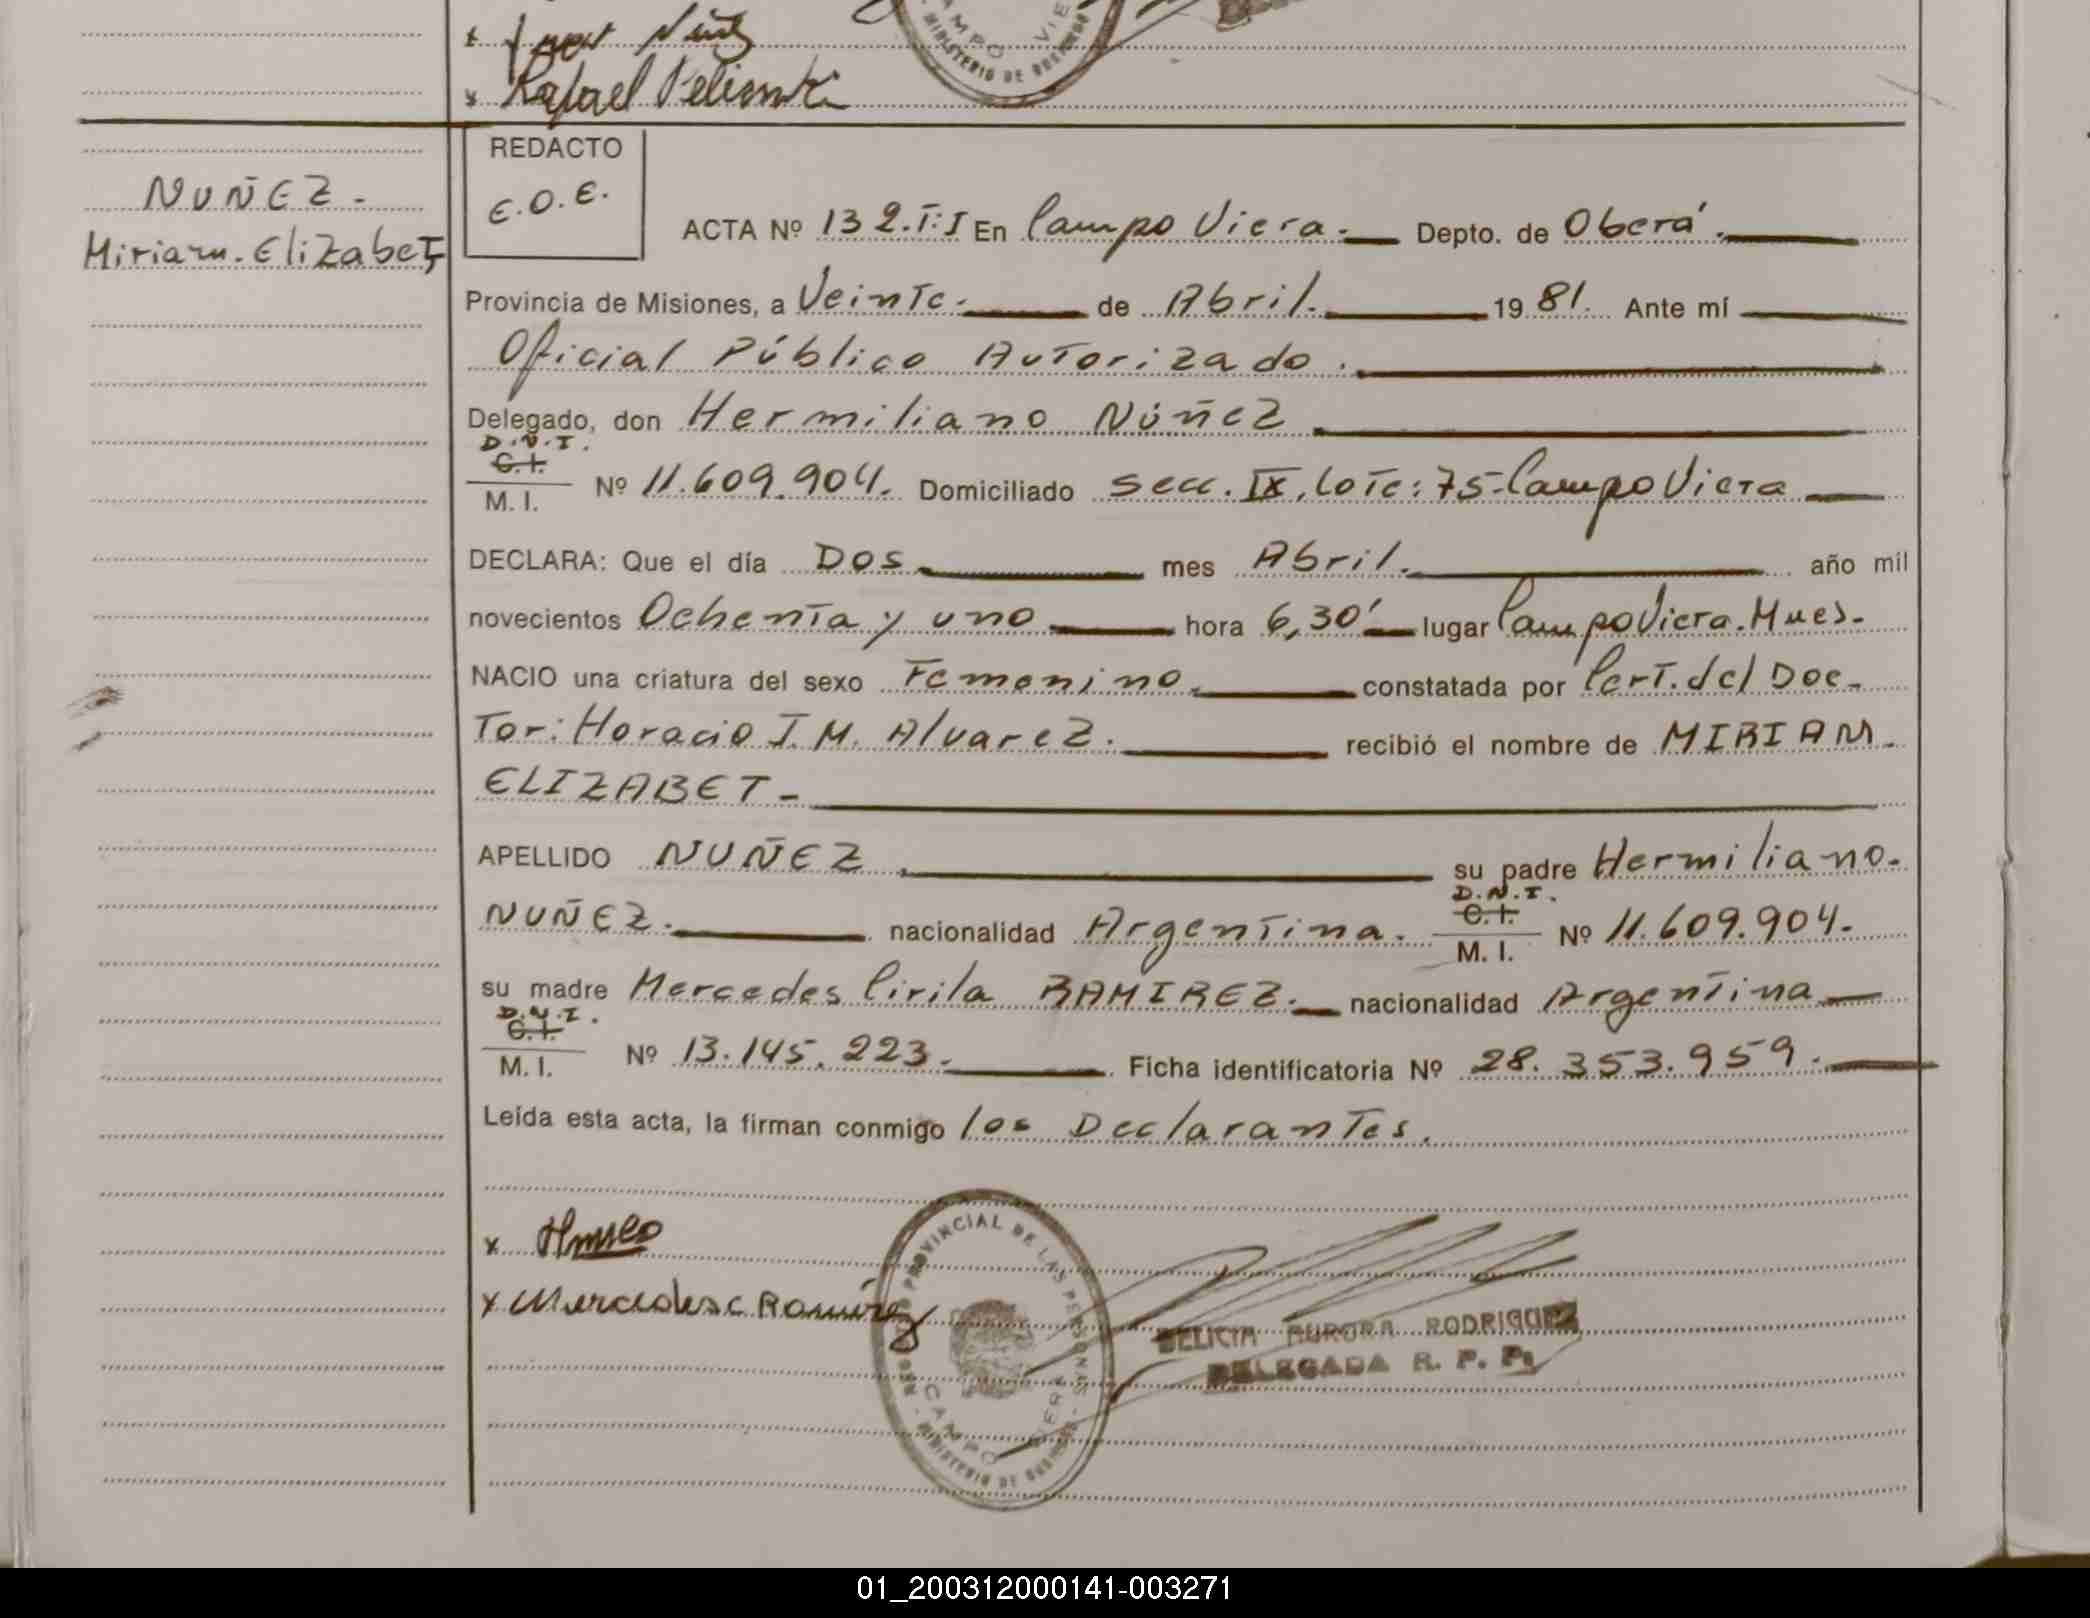 Rafael
REDACTO
E.O.E.
NUÑEZ.
Miriam. Elizabet
ACTA Nº 132.T:I En Campo Viera. Depto. de Oberá.
Provincia de Misiones, a Veinte. de Abril. 1981. Ante mí
Oficial Público Autorizado.
Delegado, don Hermiliano Núñez
D.N.I.
C.I.
M. I. Nº 11.609.904. Domiciliado Secc. IX, Lote: 75-Campo Viera
DECLARA: Que el día Dos mes Abril. año mil
novecientos Ochenta y uno hora 6,30' lugar Campo Viera. Mnes.
NACIO una criatura del sexo Femenino. constatada por Cert. del Doc-
tor: Horacio J. M. Alvarez. recibió el nombre de MIRIAM.
ELIZABET-
APELLIDO NUÑEZ su padre Hermiliano.
D.N.I.
C.I.
NUÑEZ. nacionalidad Argentina. M. I. Nº 11.609.904.
su madre Mercedes Cirila RAMIREZ. nacionalidad Argentina
D.N.I.
C.I.
M. I. Nº 13.145.223. Ficha identificatoria Nº 28.353.959.
Leída esta acta, la firman conmigo los Declarantes.
x
x Mercedes C. Ramírez
PROVINCIAL DE LAS PERSONAS
CAMPO VIERA
MINISTERIO DE GOBIERNO
DELICIA AURORA RODRIGUEZ
DELEGADA R. P. P.
01_200312000141-003271